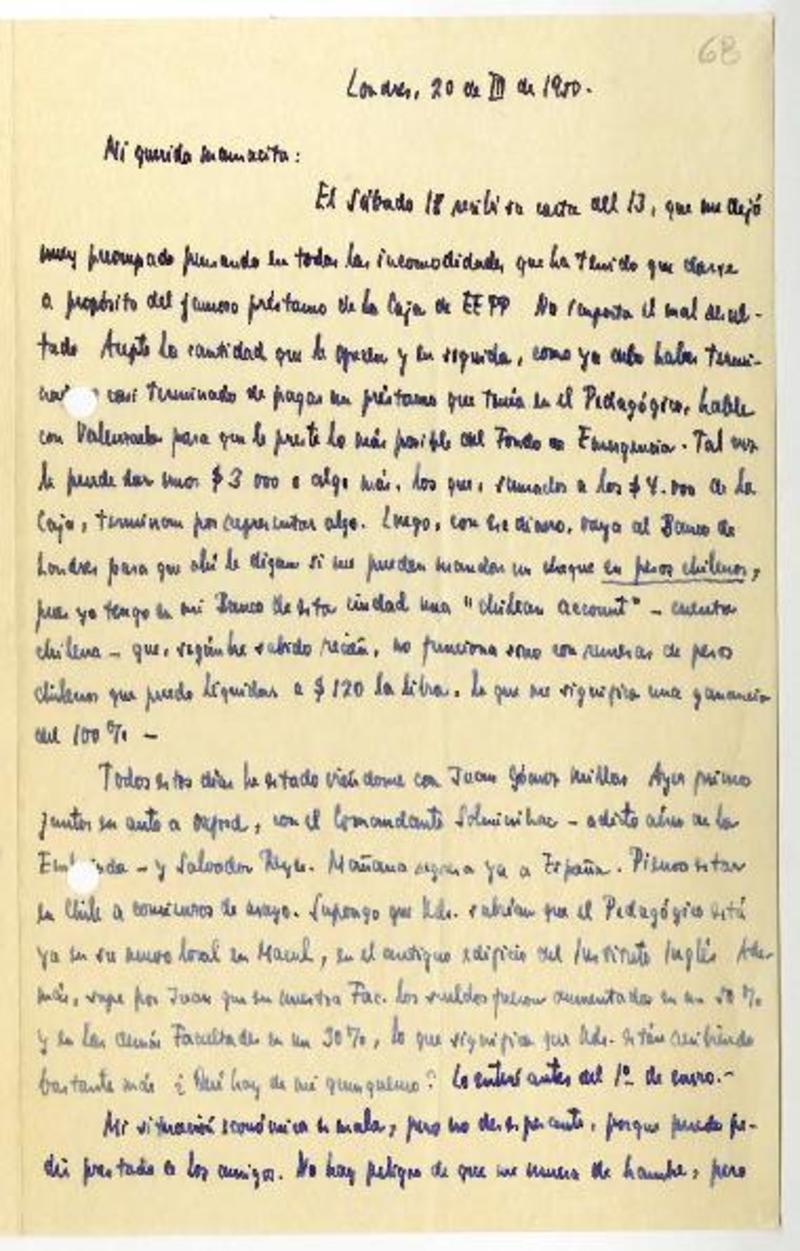 68
Londres, 20 de III de 1950.
Mi querida mamacita:
El sábado 18 recibí su carta del 13, que me dejó
muy preocupado pensando en todas las incomodidades que ha tenido que darse
a propósito del famoso préstamo de la Caja de EE PP No importa el mal resul-
tado Acepte la cantidad que le ofrecen y en seguida, como ya debo haber termi-
casi terminado de pagar un préstamo que tenía en el Pedagógico, hable
con Valenzuela para que le preste lo más posible del Fondo de Emergencia. Tal vez
le puede dar unos $ 3 000 o algo más, los que, sumados a los $ 4.000 de la
Caja, terminan por representar algo. Luego, con ese dinero, vaya al Banco de
Londres para que ahí le digan si me pueden mandar un cheque en pesos chilenos,
pues yo tengo en mi Banco de esta ciudad una "chilean account" - cuenta
chilena - que, según he sabido recién, no funciona sino con remesas de pesos
chilenos que puedo liquidar a $ 120 la libra, lo que me significa una ganancia
del 100% -
Todos estos días he estado viéndome con Juan Gómez Millas Ayer fuimos
juntos en auto a Oxford, con el Comandante Solminihac - adicto aéreo de la
- y Salvador Reyes. Mañana regresa ya a España. Piensa estar
en Chile a comienzos de mayo. Supongo que Uds. sabrían que el Pedagógico está
ya en su nuevo local en Macul, en el antiguo edificio del Instituto Inglés Ade-
más, supe por Juan que en nuestra Fac. los sueldos fueron aumentados en un 50 %
y en las demás Facultades en un 30%, lo que significa que Uds. están recibiendo
bastante más ¿Qué hay de mi quinquenio? Lo enteré antes del 1º de enero.-
Mi situación económica es mala, pero no desesperante, porque puedo pe-
dir prestado a los amigos. No hay peligro de que me muera de hambre, pero